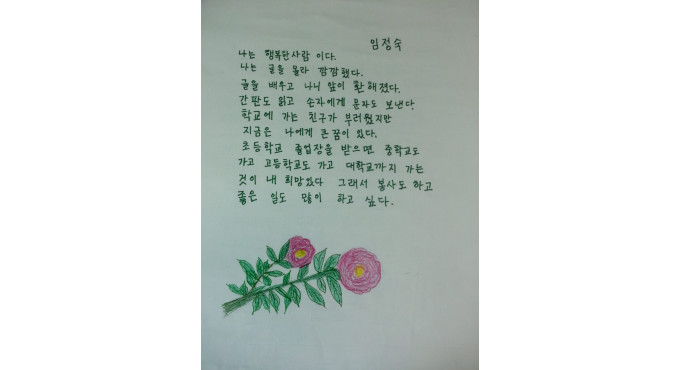 임정숙
나는 행복한사람 이다.
나는 글을 몰라 깜깜했다.
글을 배우고 나니 앞이 환해졌다.
간판도 읽고 손자에게 문자도 보낸다.
학교에 가는 친구가 부러웠지만
지금은 나에게 큰 꿈이 있다.
초등학교 졸업장을 받으면 중학교도
가고 고등학교도 가고 대학교까지 가는
것이 내 희망있다 그래서 봉사도 하고
좋은 일도 많이 하고 싶다.